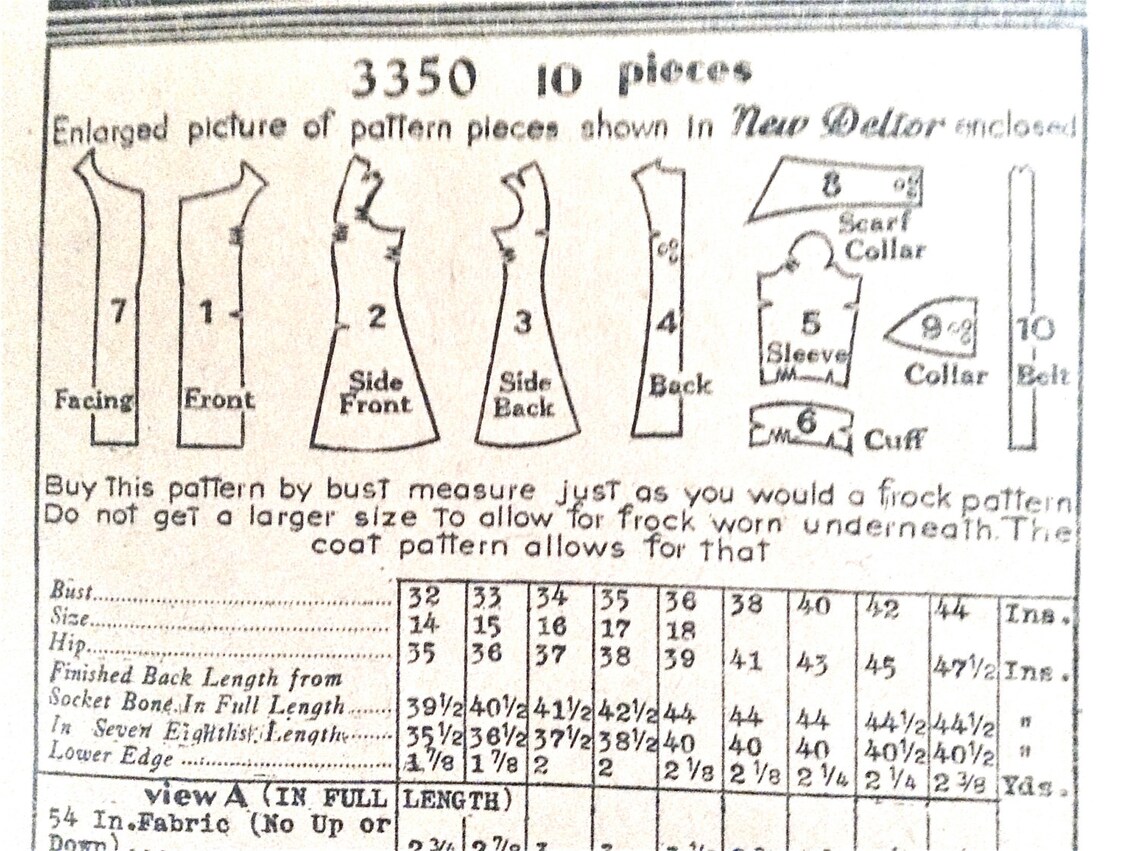 3350 10 pieces
Enlarged picture of pattern pieces shown in New Deltor enclosed
7
Facing
1
Front
2
Side
Front
3
Side
Back
4
Back
8
Scarf
Collar
5
Sleeve
6
Cuff
9
Collar
10
Belt
Buy This pattern by bust measure just as you would a frock pattern
Do not get a larger size To allow for frock worn underneath. The
coat pattern allows for that
Bust 32 33 34 35 36 38 40 42 44 Ins.
Size 14 15 16 17 18
Hip 35 36 37 38 39 41 43 45 47½ Ins.
Finished Back Length from
Socket Bone. In Full Length 39½ 40½ 41½ 42½ 44 44 44 44½ 44½ "
In Seven Eighths Length 35½ 36½ 37½ 38½ 40 40 40 40½ 40½ "
Lower Edge 1⅞ 1⅞ 2 2 2⅛ 2⅛ 2¼ 2¼ 2⅜ Yds.
view A (IN FULL LENGTH)
54 In. Fabric (No Up or
Down) 2¾ 2⅞